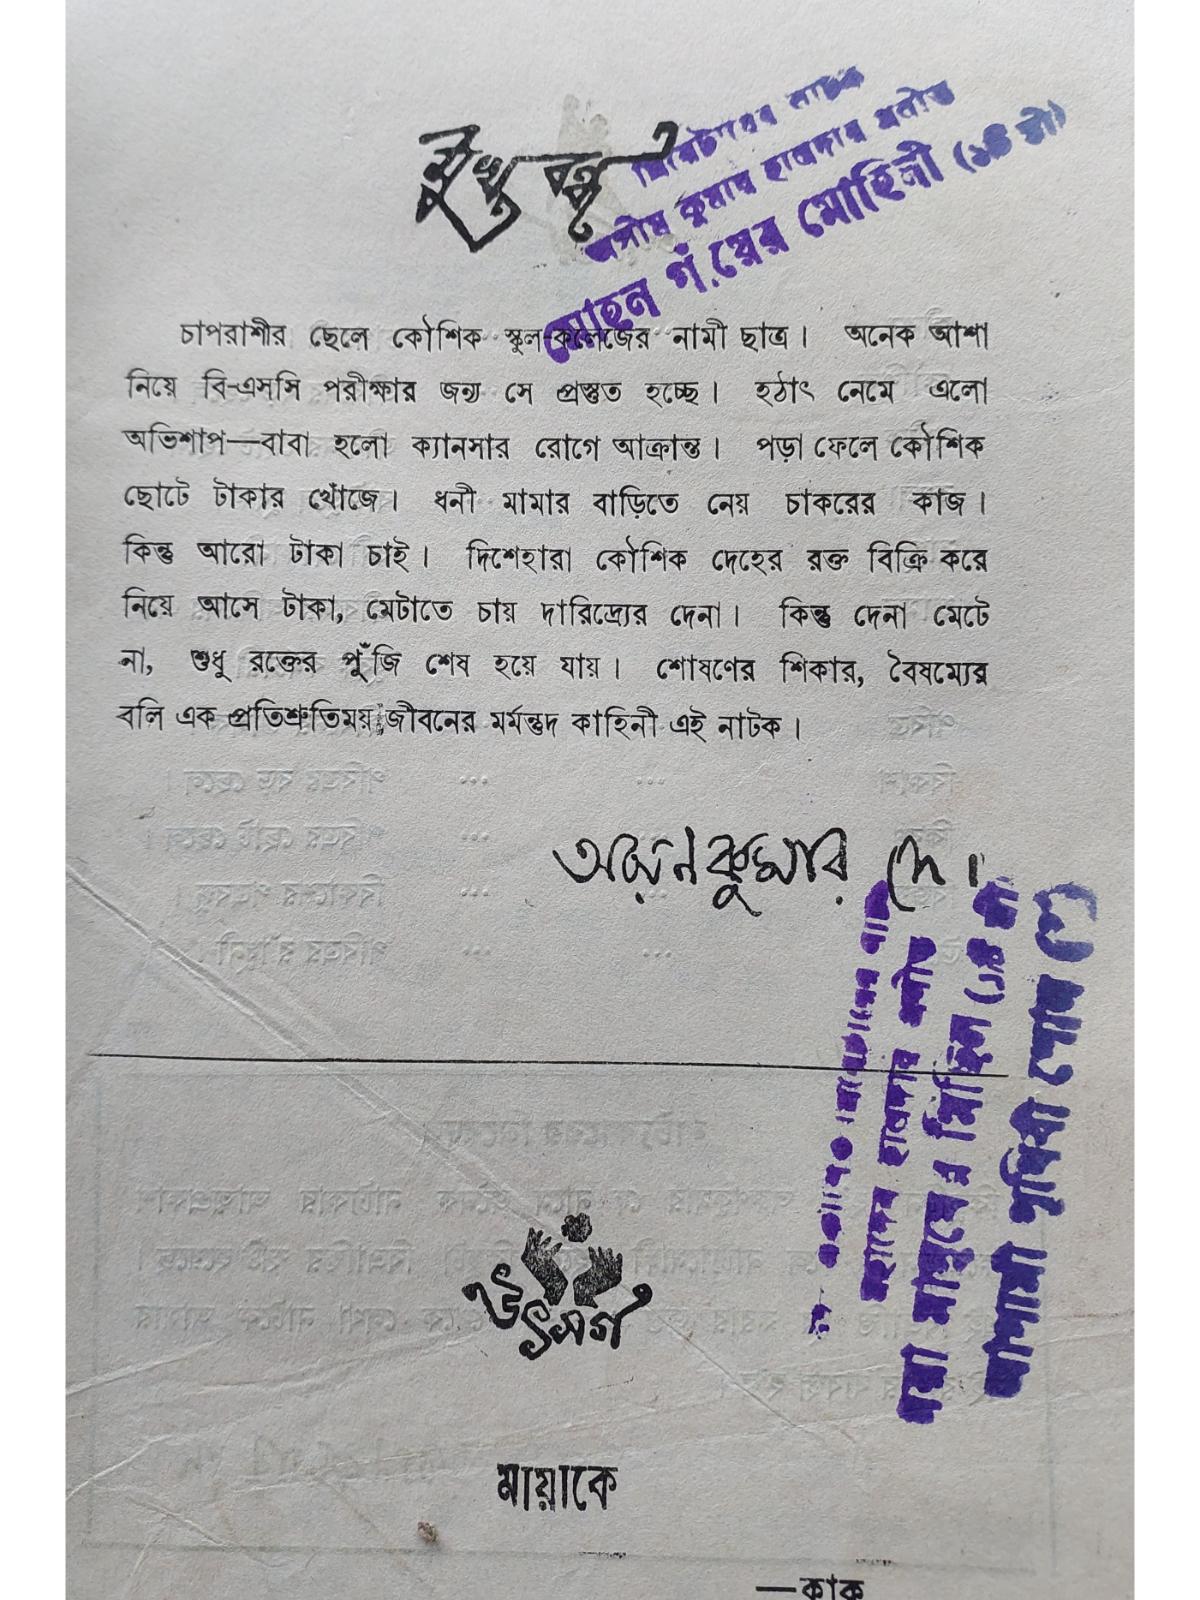 মুখবন্ধ
থিয়েটারের নাটক
অসীম কুমার হালদার প্রণীত
মোহন গাঁয়ের মোহিনী (১৪ স্ত্রী)
চাপরাশীর ছেলে কৌশিক স্কুল-কলেজের নামী ছাত্র। অনেক আশা
নিয়ে বি-এসসি পরীক্ষার জন্য সে প্রস্তুত হচ্ছে। হঠাৎ নেমে এলো
অভিশাপ—বাবা হলো ক্যানসার রোগে আক্রান্ত। পড়া ফেলে কৌশিক
ছোটে টাকার খোঁজে। ধনী মামার বাড়িতে নেয় চাকরের কাজ।
কিন্তু আরো টাকা চাই। দিশেহারা কৌশিক দেহের রক্ত বিক্রি করে
নিয়ে আসে টাকা, মেটাতে চায় দারিদ্র্যের দেনা। কিন্তু দেনা মেটে
না, শুধু রক্তের পুঁজি শেষ হয়ে যায়। শোষণের শিকার, বৈষম্যের
বলি এক প্রতিশ্রুতিময় জীবনের মর্মন্তুদ কাহিনী এই নাটক।
অয়নকুমার দে।
হালদার
মানুষের মিছিল
পৃথিবী
উৎসর্গ
মায়াকে
—কাকু